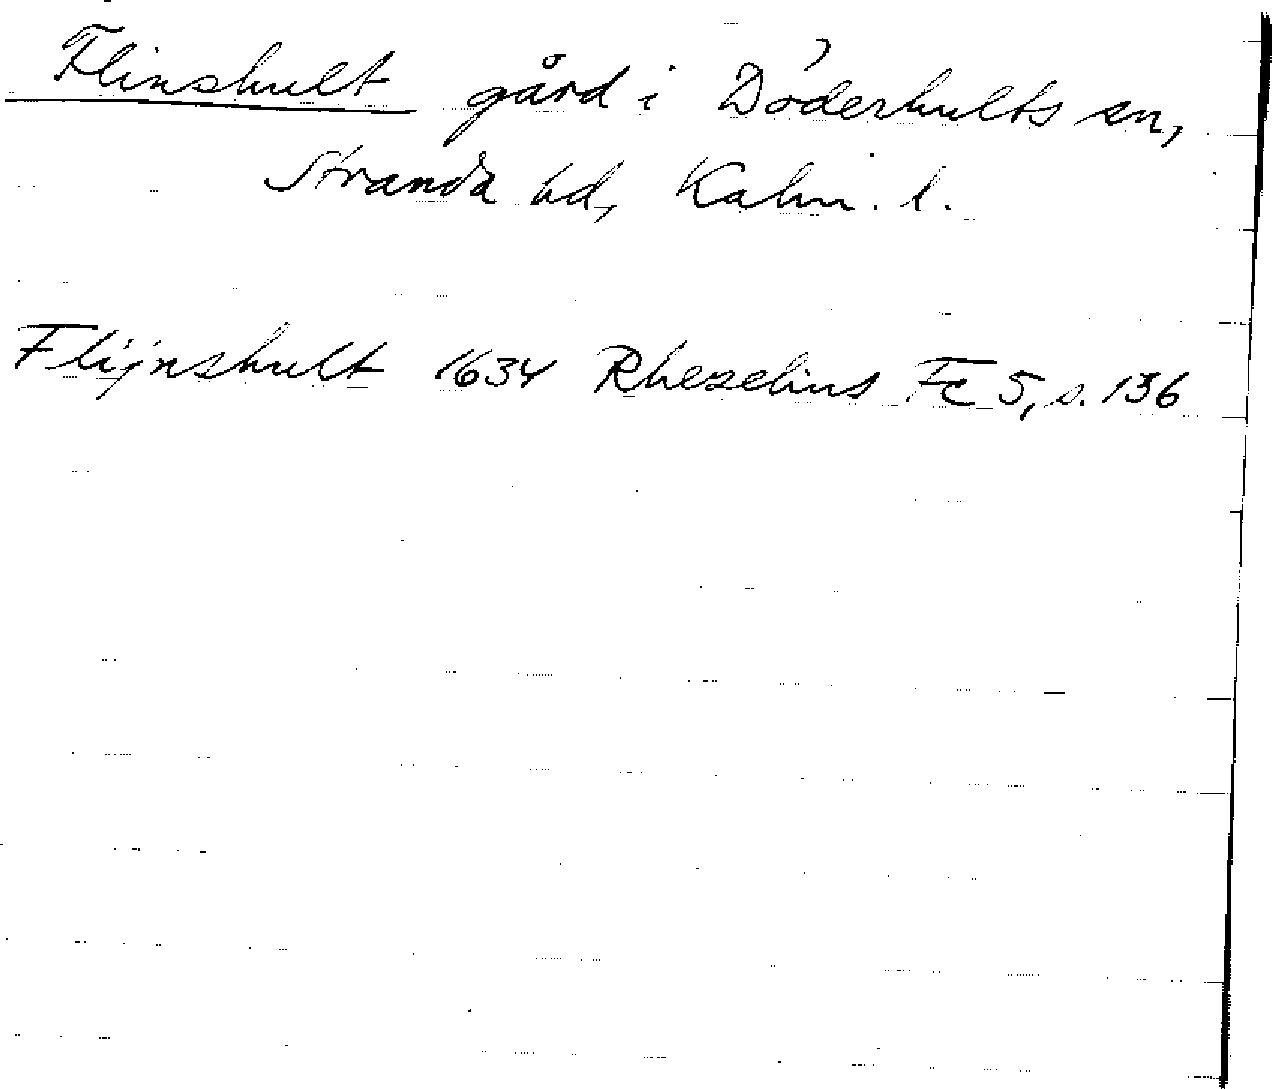 Flinshult gård i Döderhults sn,
Stranda hd, Kalm. l.
Flijnshult 1634 Rhezelius Fc 5, s. 136